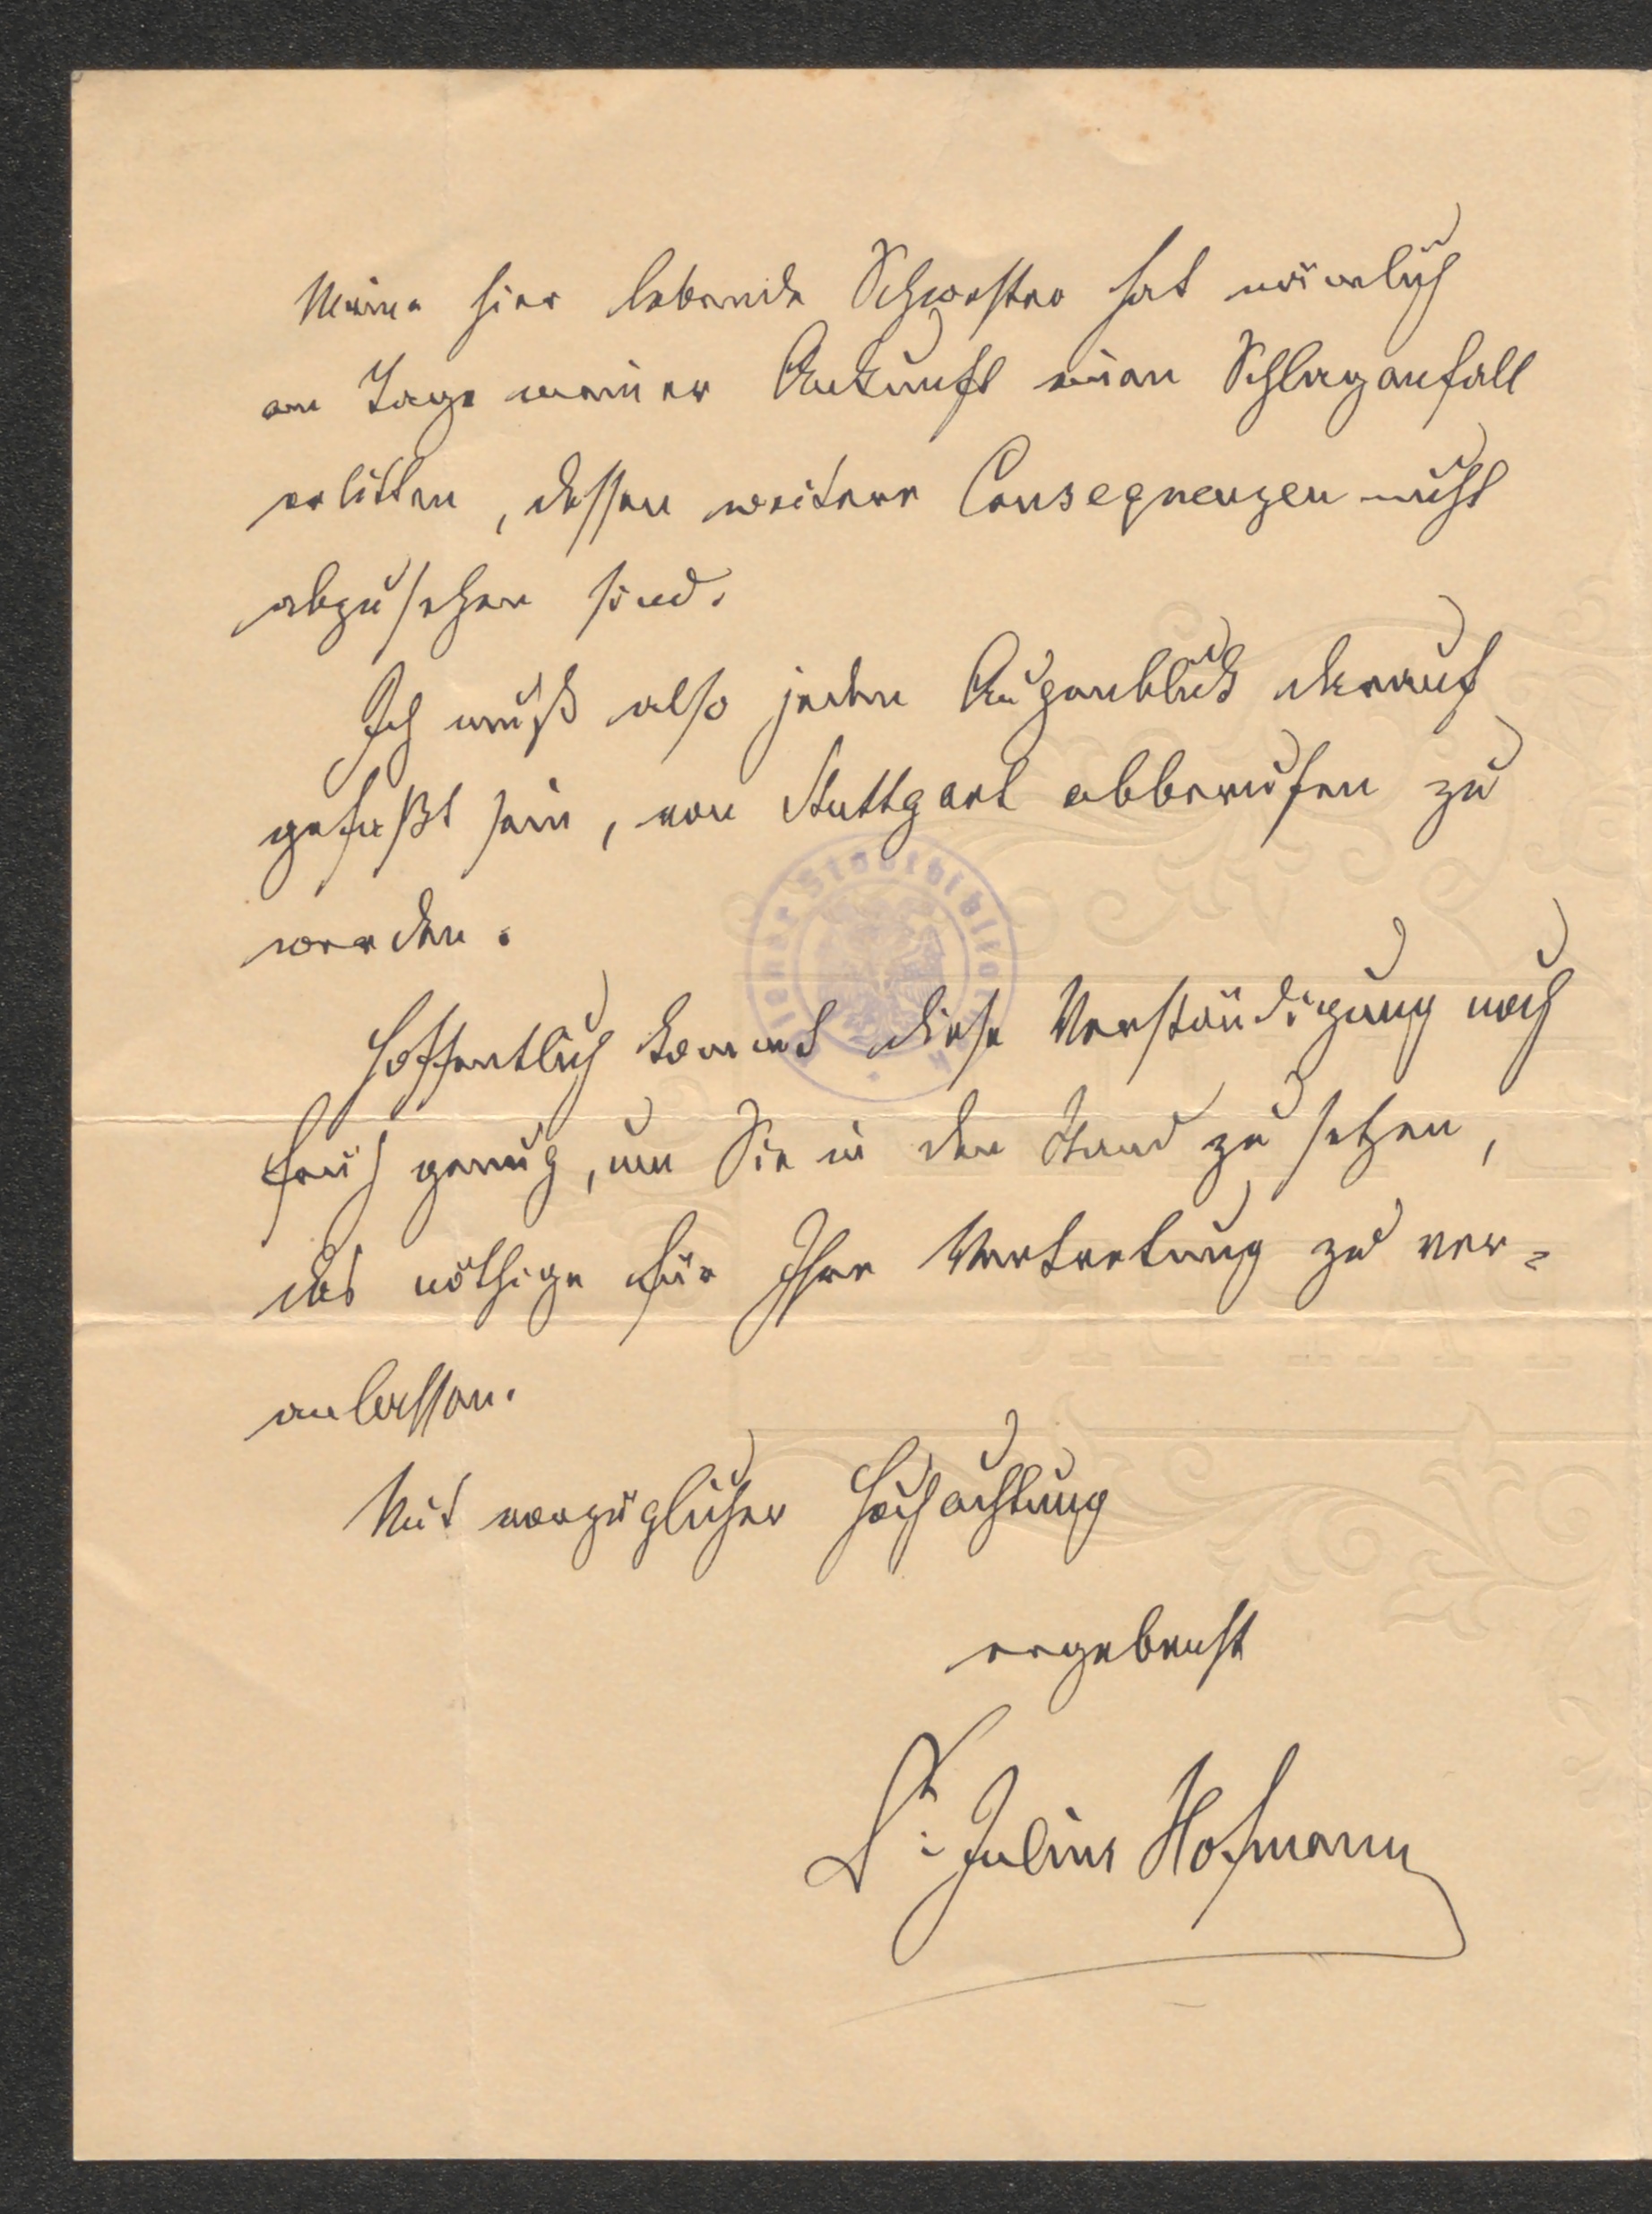 Meine hier lebende Schwester hat nämlich
am Tage meiner Ankunft einen Schlaganfall
erlitten, dessen weitere Consequenzen nicht
abzusehen sind.
Ich muß also jeden Augenblick darauf
gefaßt sein, von Stuttgart abberufen zu
werden.
Wiener Stadtbibliothek
Hoffentlich kommt diese Verständigung noch
früh genug, um Sie in den Stand zu setzen,
das nöthige für Ihre Vertretung zu ver=
anlassen.
Mit vorzüglicher Hochachtung
ergebenst
Dr. Julius Hofmann